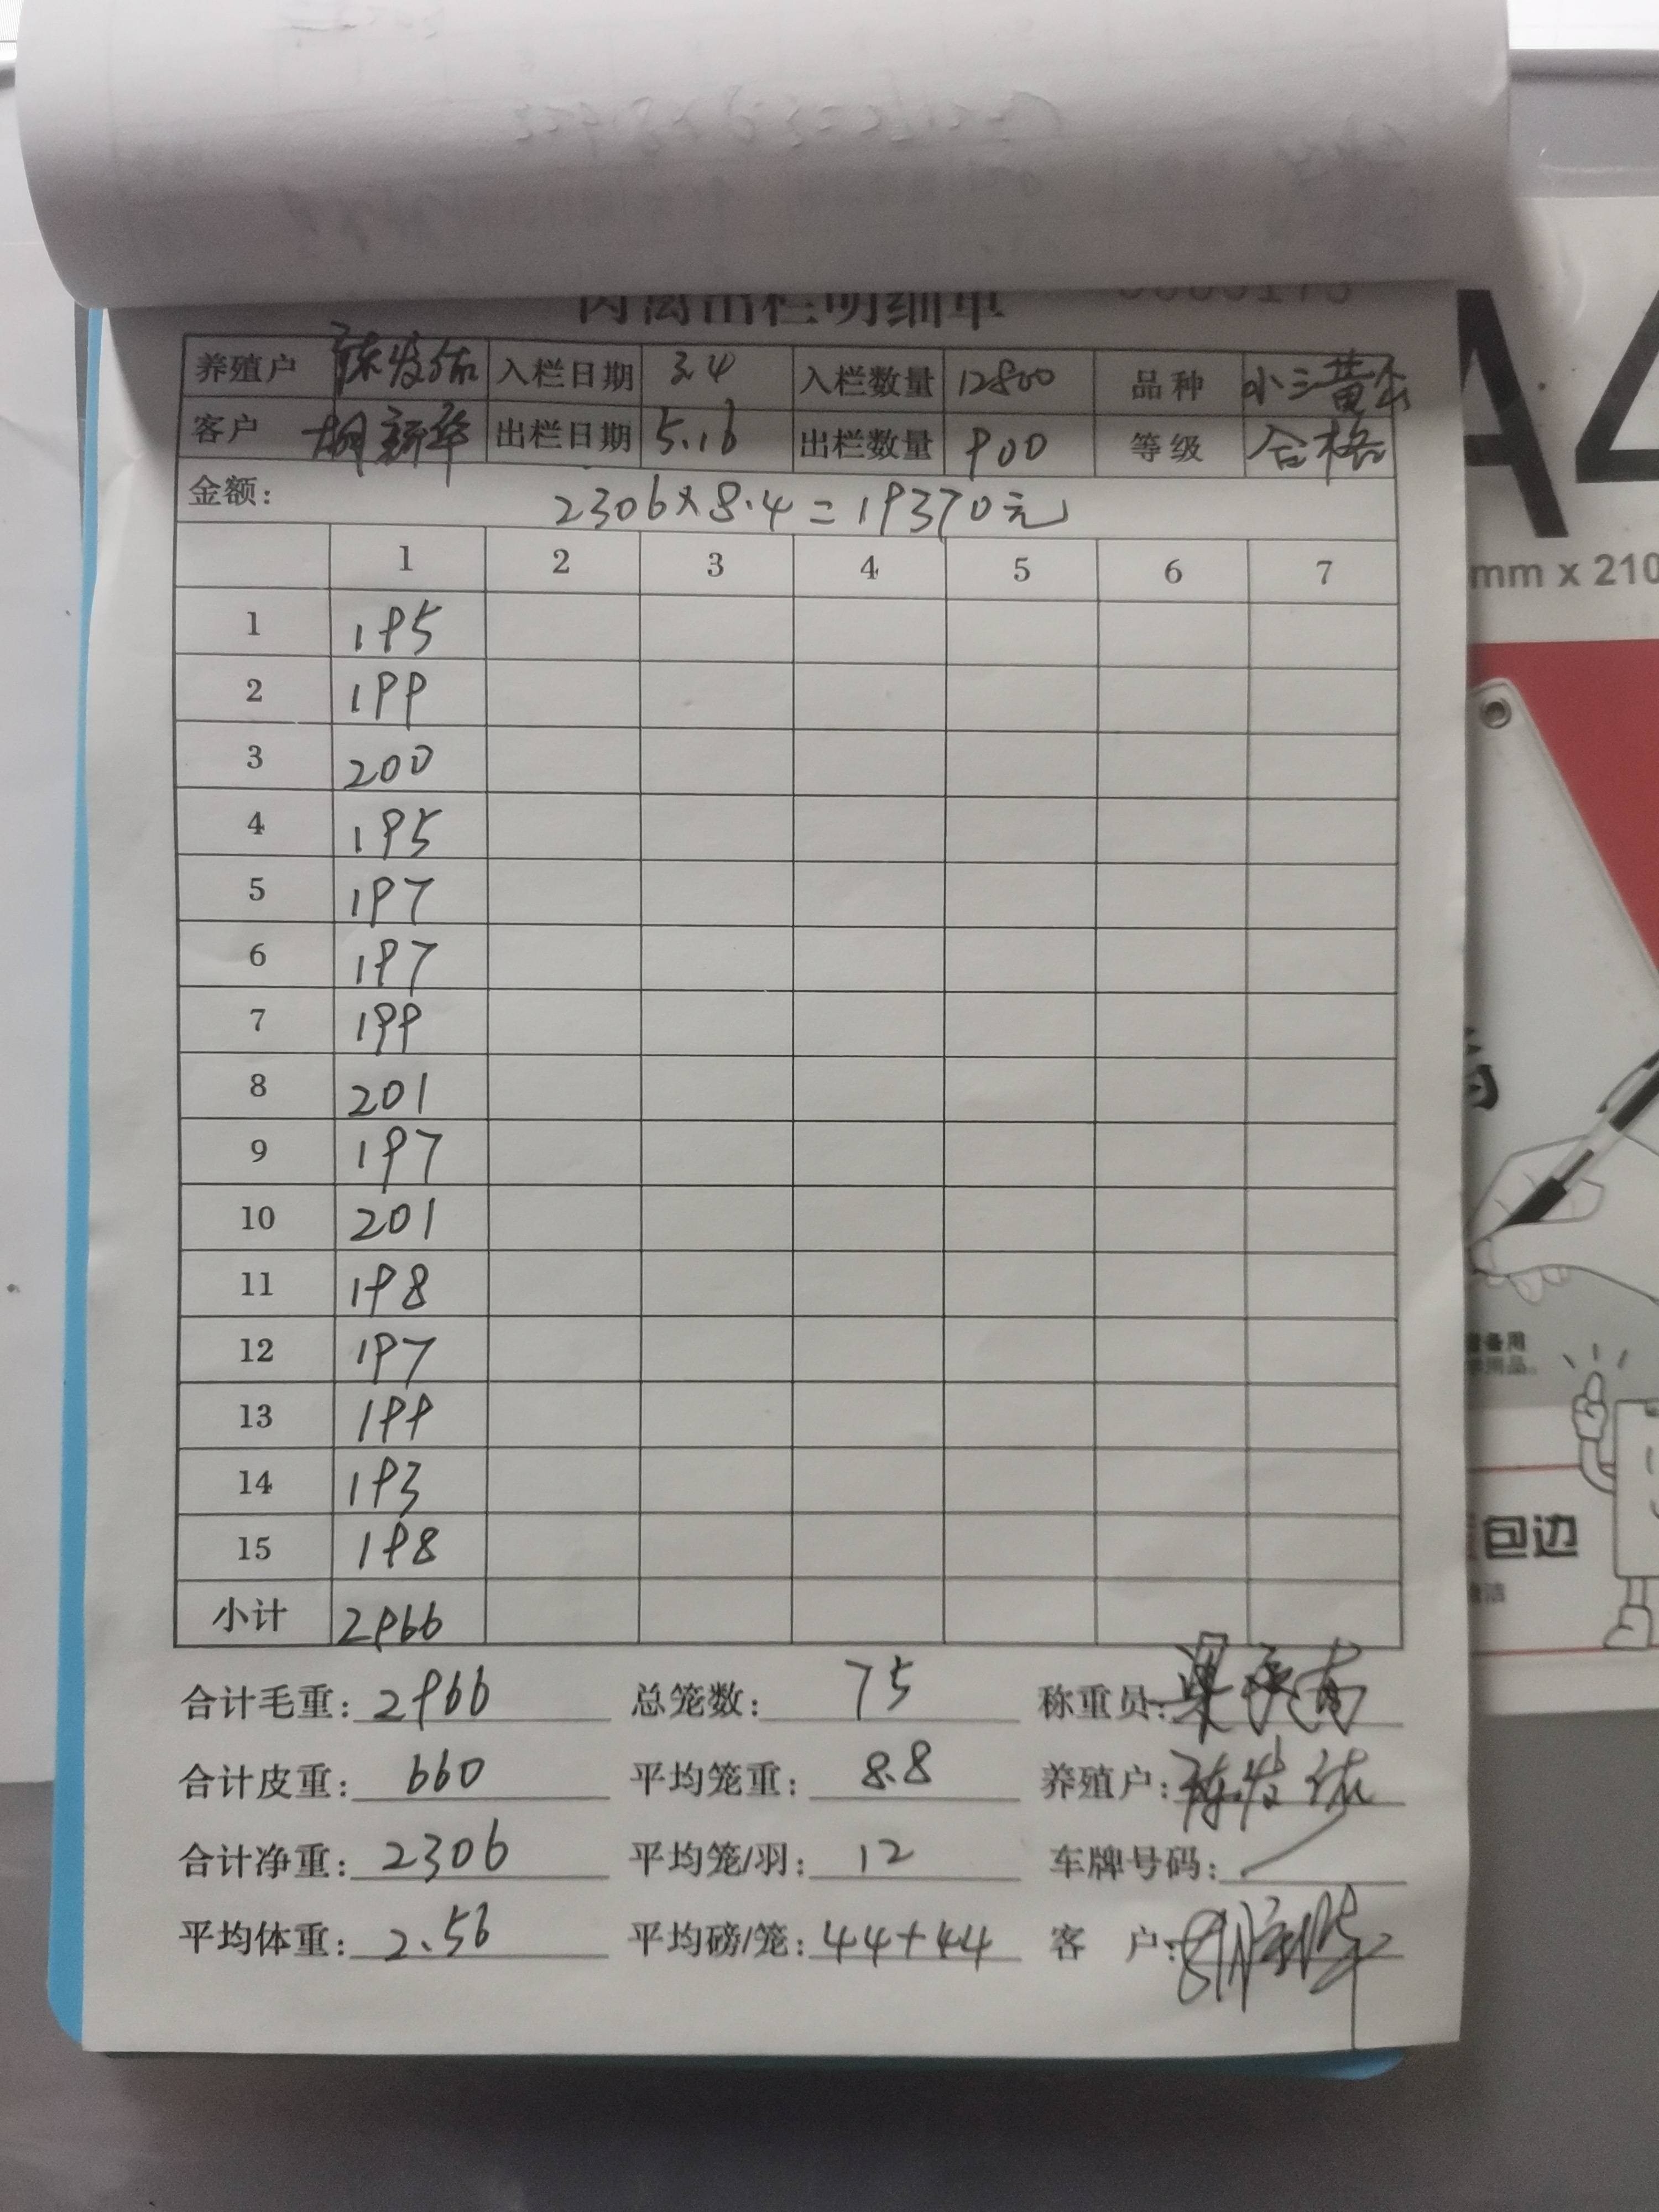 肉禽出栏明细单 0000173
养殖户 陈发佑 入栏日期 3.4 入栏数量 12800 品种 小三黄公
客户 胡新华 出栏日期 5.16 出栏数量 900 等级 合格
金额: 2306×8.4=19370元
1 2 3 4 5 6 7
1 195
2 199
3 200
4 195
5 197
6 197
7 199
8 201
9 197
10 201
11 198
12 197
13 199
14 193
15 198
小计 2966
合计毛重: 2966 总笼数: 75 称重员:
合计皮重: 660 平均笼重: 8.8 养殖户: 陈发佑
合计净重: 2306 平均笼/羽: 12 车牌号码:
平均体重: 2.56 平均磅/笼: 44+44 客 户: 胡新华
A4
mm x 210
备用
用品。
包边
洁